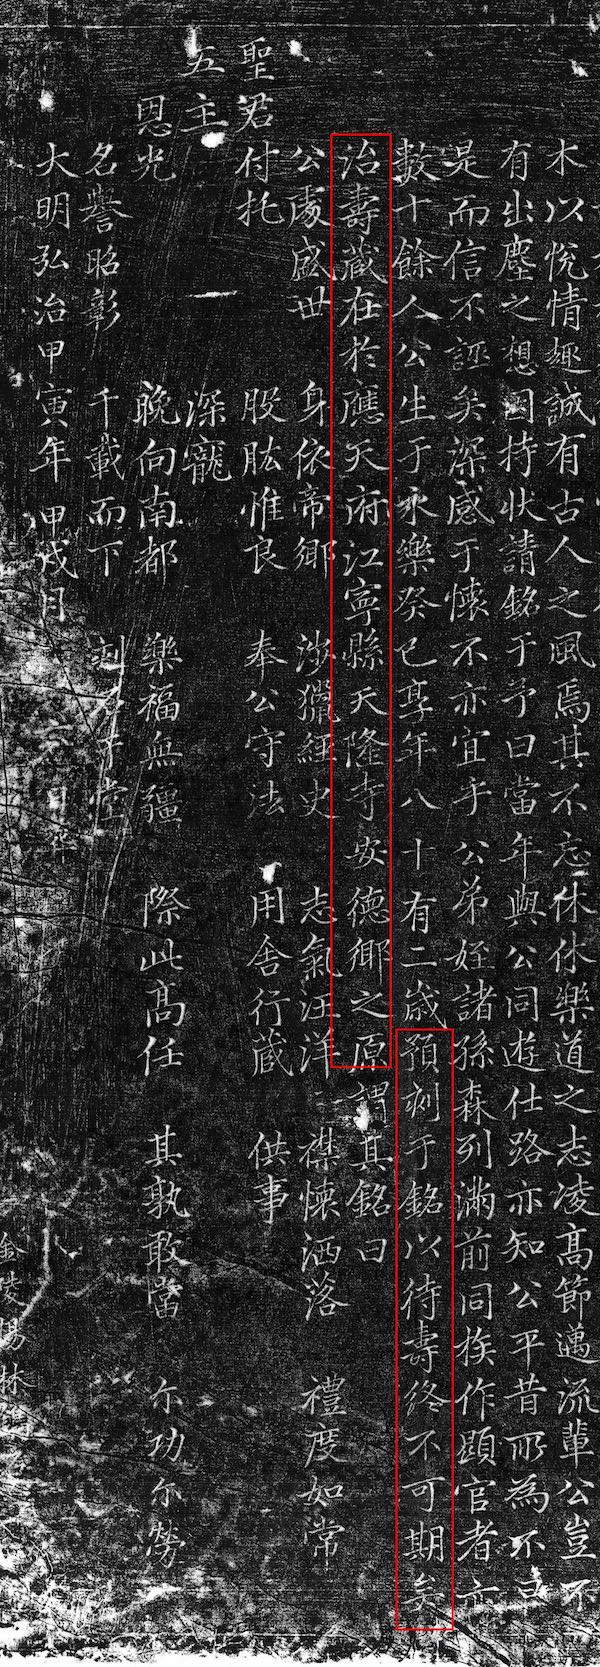 木以悅情趣誠有古人之風焉其不忘休休樂道之志凌高節邁流輩公豈不
有出塵之想因持狀請銘于予曰當年與公同遊仕路亦知公平昔所為不
是而信不誣矣深感于懷不亦宜乎公弟姪諸孫森列滿前同族作顯官者亦
數十餘人公生于永樂癸巳享年八十有二歲預刻于銘以待壽終不可期矣
治壽藏在於應天府江寧縣天隆寺安德鄉之原謂其銘曰
公處盛世 身依帝鄉 涉獵經史 志氣汪洋 襟懷洒落 禮度如常
聖君付托 股肱惟良 奉公守法 用舍行藏 供事
五主 一 深寵
恩光 晚向南都 樂福無疆 際此高任 其孰敢當 尔功尔勞
名譽昭彰 千載而下 刻 堂
大明弘治甲寅年甲戌月 六日
金陵楊林